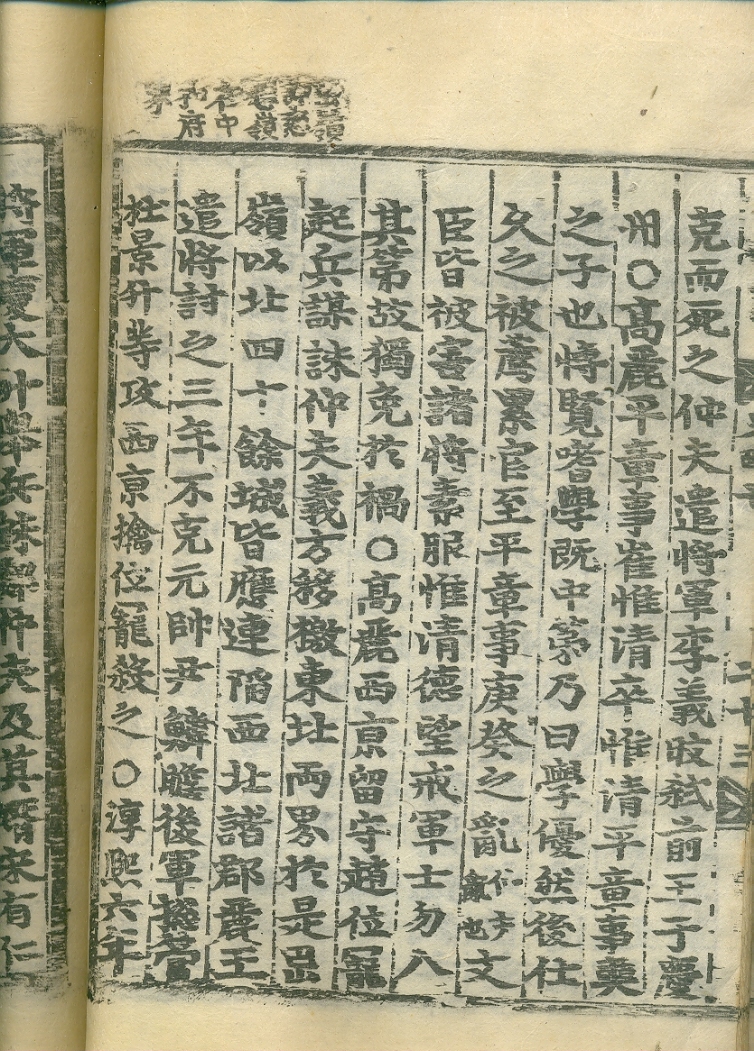 嶺
悲嶺
在中
和府
二十三
克而死之仲夫遣將軍李義旼弑前王于慶
州○高麗平章事崔惟清卒惟清平章事奭
之子也特賢嗜學既中第乃曰學優然後仕
久之被薦累官至平章事庚癸之亂仲夫亂也文
臣皆被害諸將素服惟清德望戒軍士勿入
其第故獨免於禍○高麗西京留守趙位寵
起兵謀誅仲夫義方移檄東北兩界於是岊
嶺以北四十餘城皆應連陷西北諸郡麗王
遣將討之三年不克元帥尹鱗瞻後軍摠管
杜景升等攻西京擒位寵殺之○淳熙六年
將軍慶大升舉兵誅鄭仲夫及其婿宋有仁